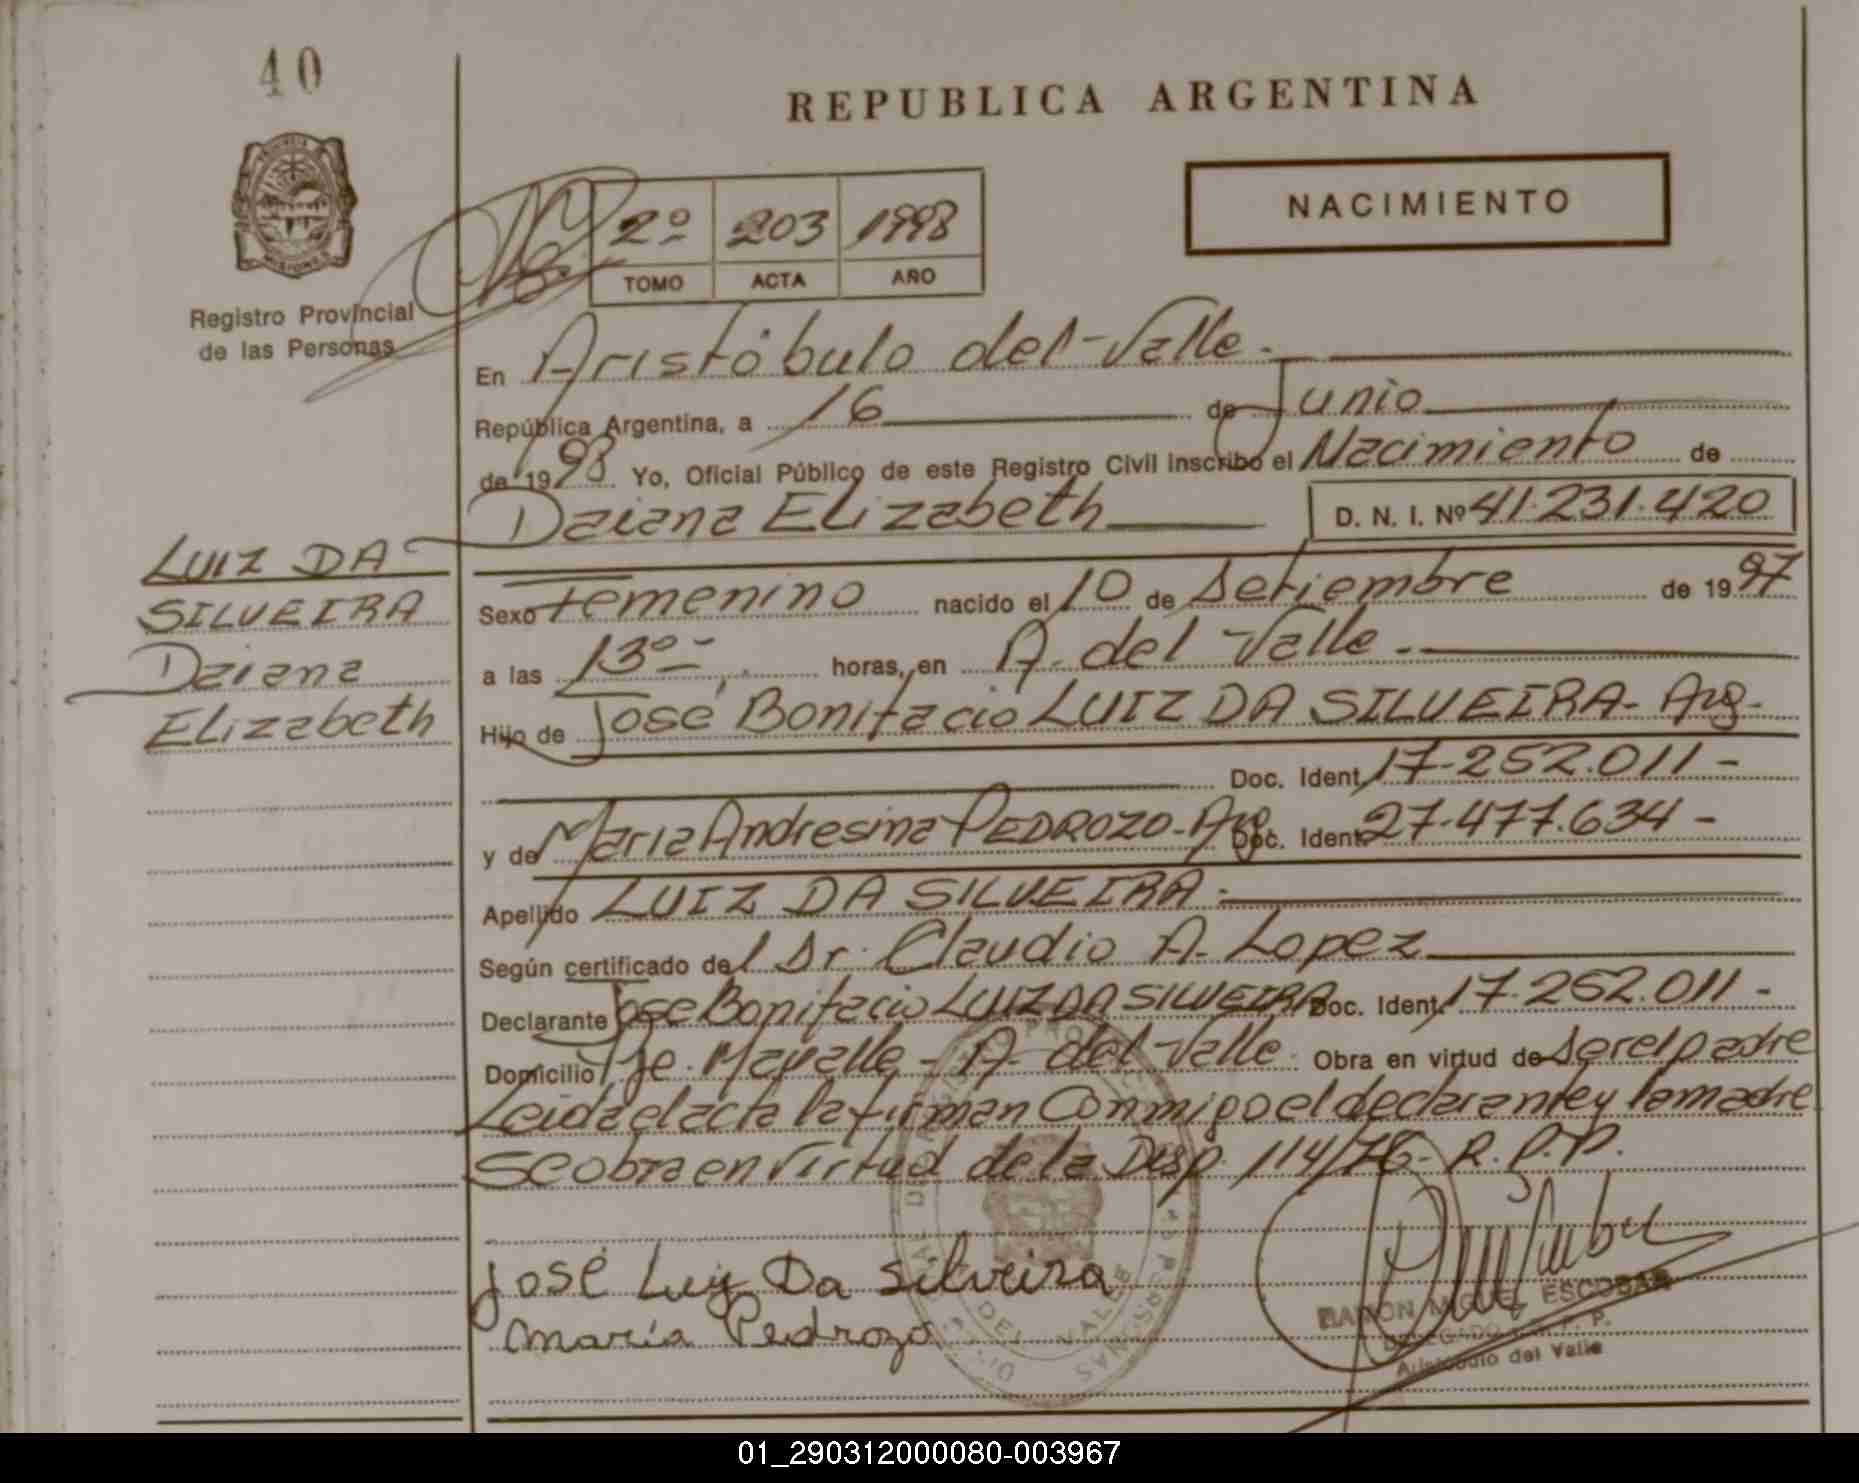 40
REPUBLICA ARGENTINA
NACIMIENTO
2º 203 1998
TOMO ACTA AÑO
PROVINCIA
MISIONES
Registro Provincial
de las Personas
En Aristóbulo del Valle.
República Argentina, a 16 de Junio
de 1998 Yo, Oficial Público de este Registro Civil inscribo el Nacimiento de
Daiana Elizabeth D. N. I. Nº 41.231.420
LUIZ DA
SILVEIRA
Daiana
Elizabeth
Sexo Femenino nacido el 10 de Setiembre de 1997
a las 13º horas, en A. del Valle.
Hijo de José Bonifacio LUIZ DA SILVEIRA- Arg-
Doc. Ident. 17.252.011-
y de Maria Andresina PEDROZO-Arg. Doc. Ident. 27.477.634-
Apellido LUIZ DA SILVEIRA.
Según certificado del Dr. Claudio A. Lopez
Declarante Jose Bonifacio LUIZ DA SILVEIRA Doc. Ident. 17.252.011-
Domicilio Pje. - A. del Valle. Obra en virtud de ser el padre
Leida el acta la firman Conmigo el declarante y la madre
se obra en virtud de la Disp. 114/76- R.P.P.
José Luiz Da Silveira
María Pedrozo
DEL VALLE
RAMON MIGUEL ESCOBAR
DELEGADO R. P. P.
Aristóbulo del Valle
01_290312000080-003967